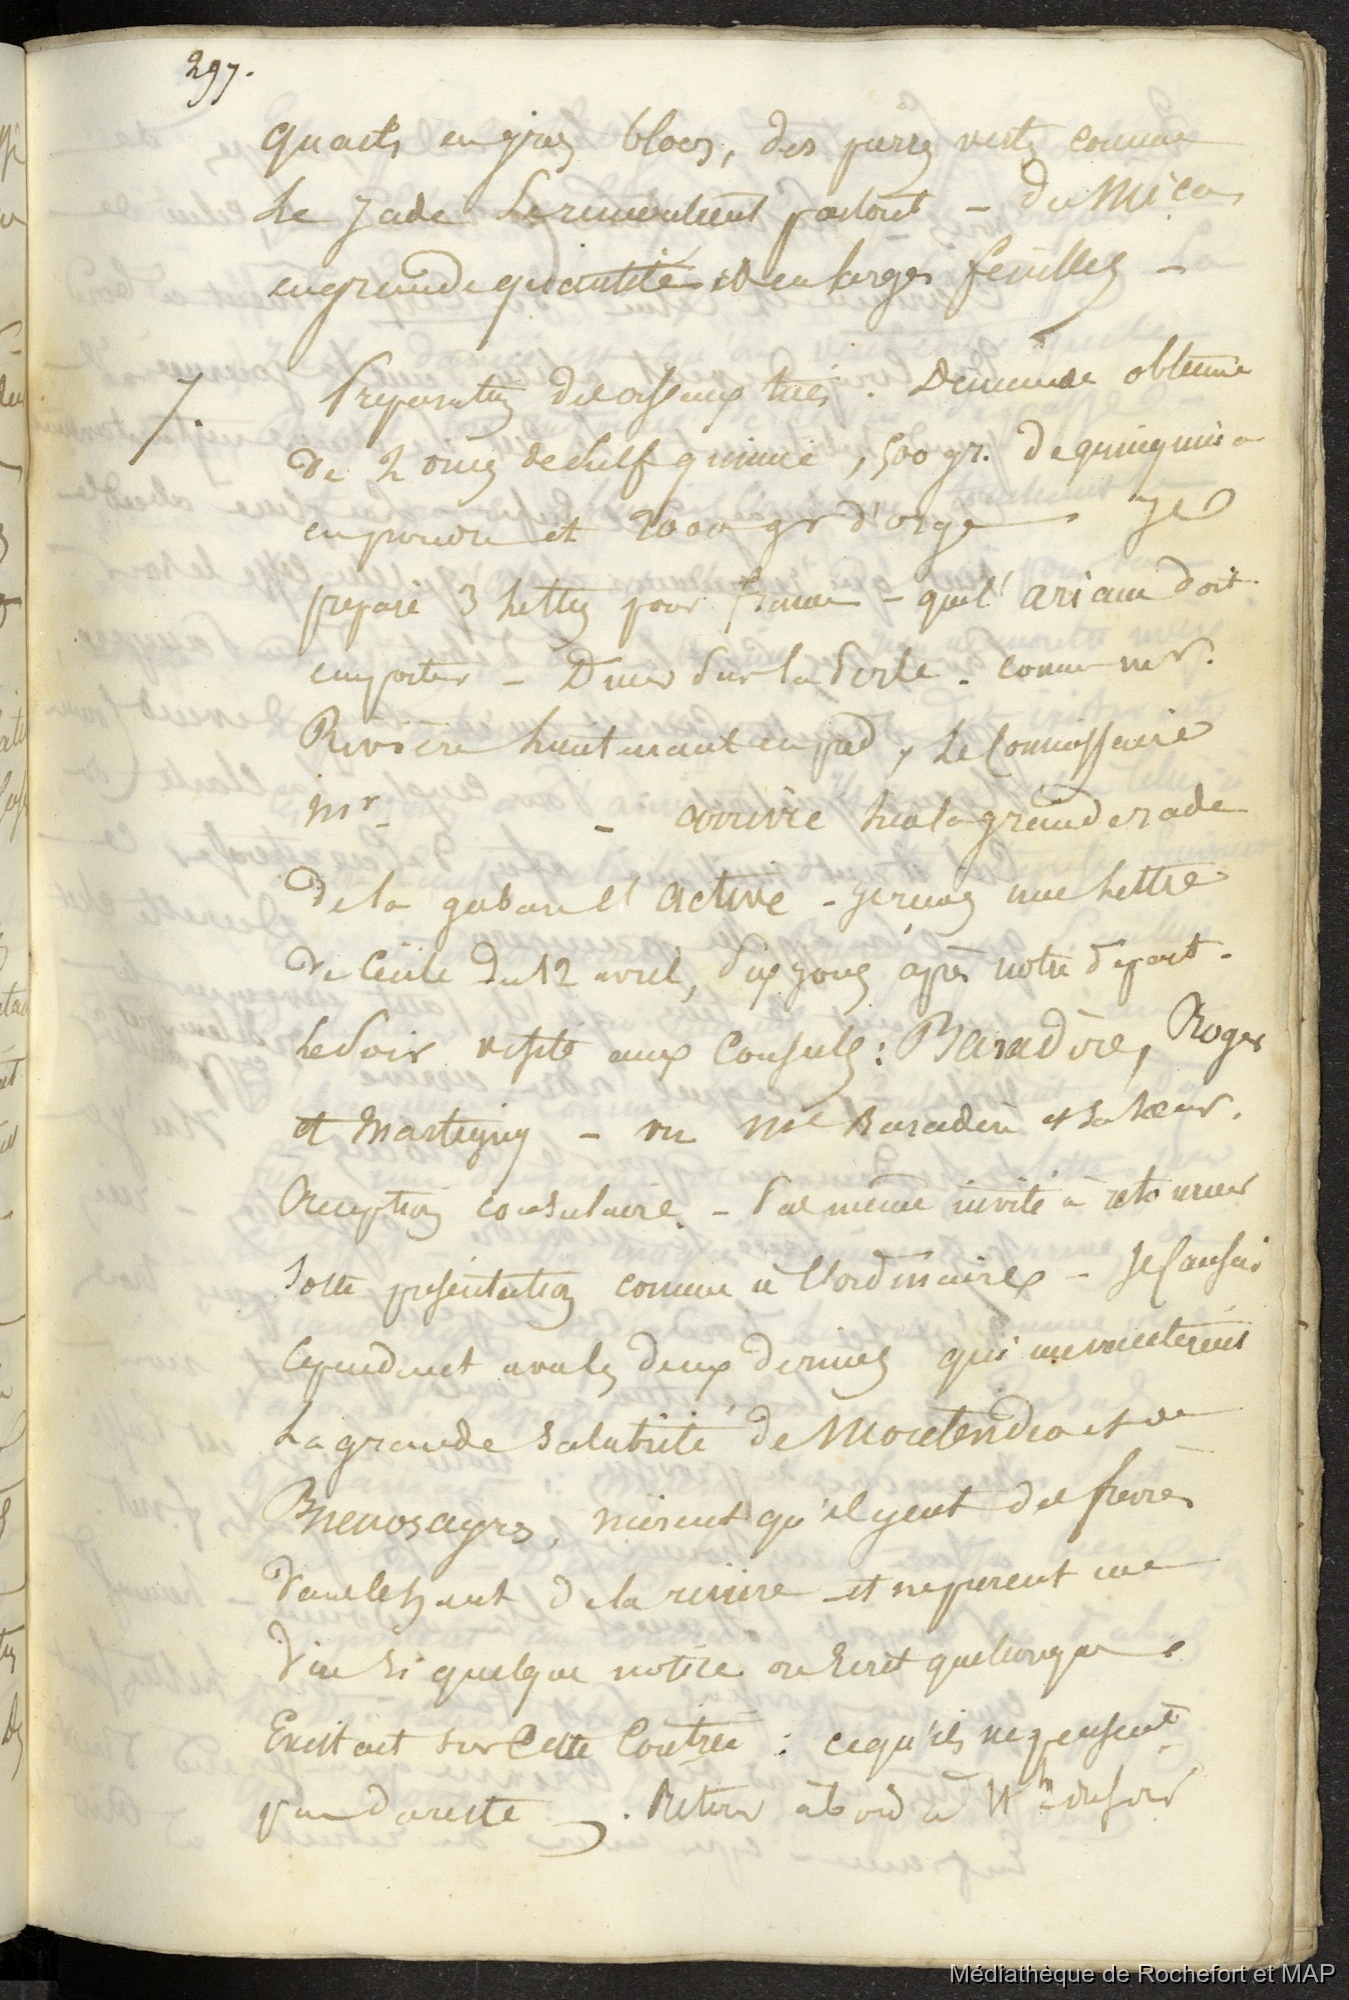 297.
quartz en gros blocs, des pierres vertes comme
le jade se rencontrent partout - du Mica
en grande quantité et en larges feuilles -
7. Preparation des oiseaux tués. Demande obtenue
de 2 onces de sulf quinine, 500 gr. de quinquina
en poudre et 2000 gr d'orge Je
prepare 3 lettres pour france - que l'ariane doit
emporter - Diner sur la Perle. comme mr.
Rivière lieutenant en pied, le Commissaire
mr - arrivée sur la grande rade
de la gabare l'active - je reçois une lettre
de Cécile du 12 avril, dix jours après notre départ.
le soir visite aux Consuls : Baradère, Roger
et Martigny - vu Me Baradère et sa sœur.
Reception consulaire. - Pas même invité à retourner
sotte présentation comme à l'ordinaire - Je causai
cependant avec les deux derniers qui me vantèrent
la grande salubrité de Montevideo et de
Buenosayres, nièrent qu'il y eut des fièvres
dans le haut de la rivière - et ne purent me
dire si quelque notice ou écrit quelconque
Existait sur cette Contrée : ce qu'ils ne pensent
pas du reste. Retour à bord à 11h du soir
Médiathèque de Rochefort et MAP